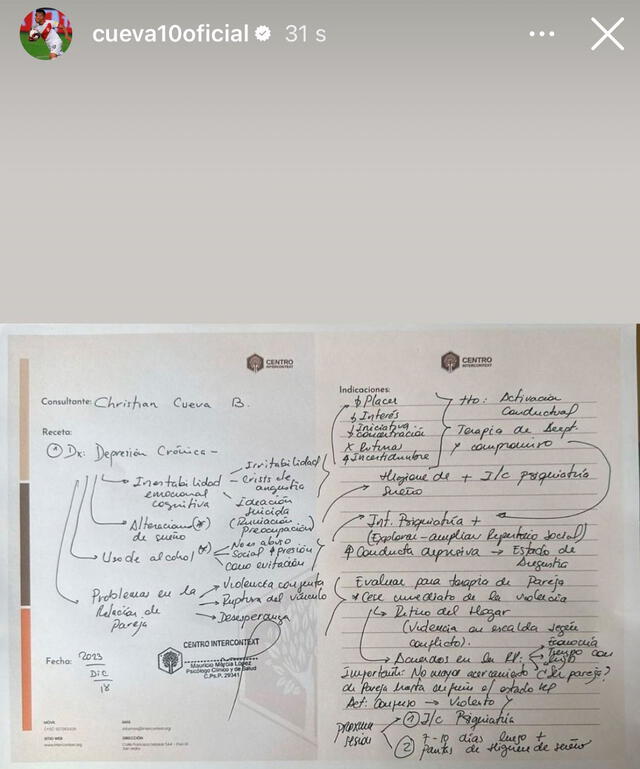 cueva10oficial 31 s
CENTRO
INTERCONTEXT
Consultante: Christian Cueva B.
Receta:
Dx: Depresión Crónica -
Inestabilidad
emocional
cognitiva
Irritabilidad
Crisis de
angustia
Ideación
suicida
(Rumiación
preocupación)
Alteraciones (*)
de sueño
Uso de alcohol (*)
No es abuso
Social ↑ presión
Como evitación
Problemas en la
Relación de
Pareja
Violencia conjunta
Ruptura del vínculo
Desesperanza
Fecha: 2023
DIC
18
CENTRO INTERCONTEXT
Mauricio Murcia López
Psicólogo Clínico y de Salud
C.Ps.P. 29341
MÓVIL
MAIL
SITIO WEB
www.intercontext.org
DIRECCIÓN
CENTRO
INTERCONTEXT
Indicaciones:
↓ Placer
↓ Interés
↓ Iniciativa
↓ Concentración
X Rutina
↑ Incertidumbre
tto: Activación
Conductual
Terapia de Acept.
y compromiso
Higiene de + I/c Psiquiatría
sueño
Int. Psiquiatría +
(Explorar - ampliar Repertorio social)
↑ Conducta depresiva → Estado de
Angustia
Evaluar para terapia de Pareja
* Cese inmediato de la violencia
↳ Retiro del Hogar
(Violencia en escalda según
conflicto).
Acuerdos en la RP:
Economía
Tiempo con
Importante: No mayor acercamiento
de Pareja hasta
Act: Confuso → Violento Y
Proxima
sesión
1 I/c Psiquiatría
2 7-10 días luego +
Pautas de Higiene de sueño